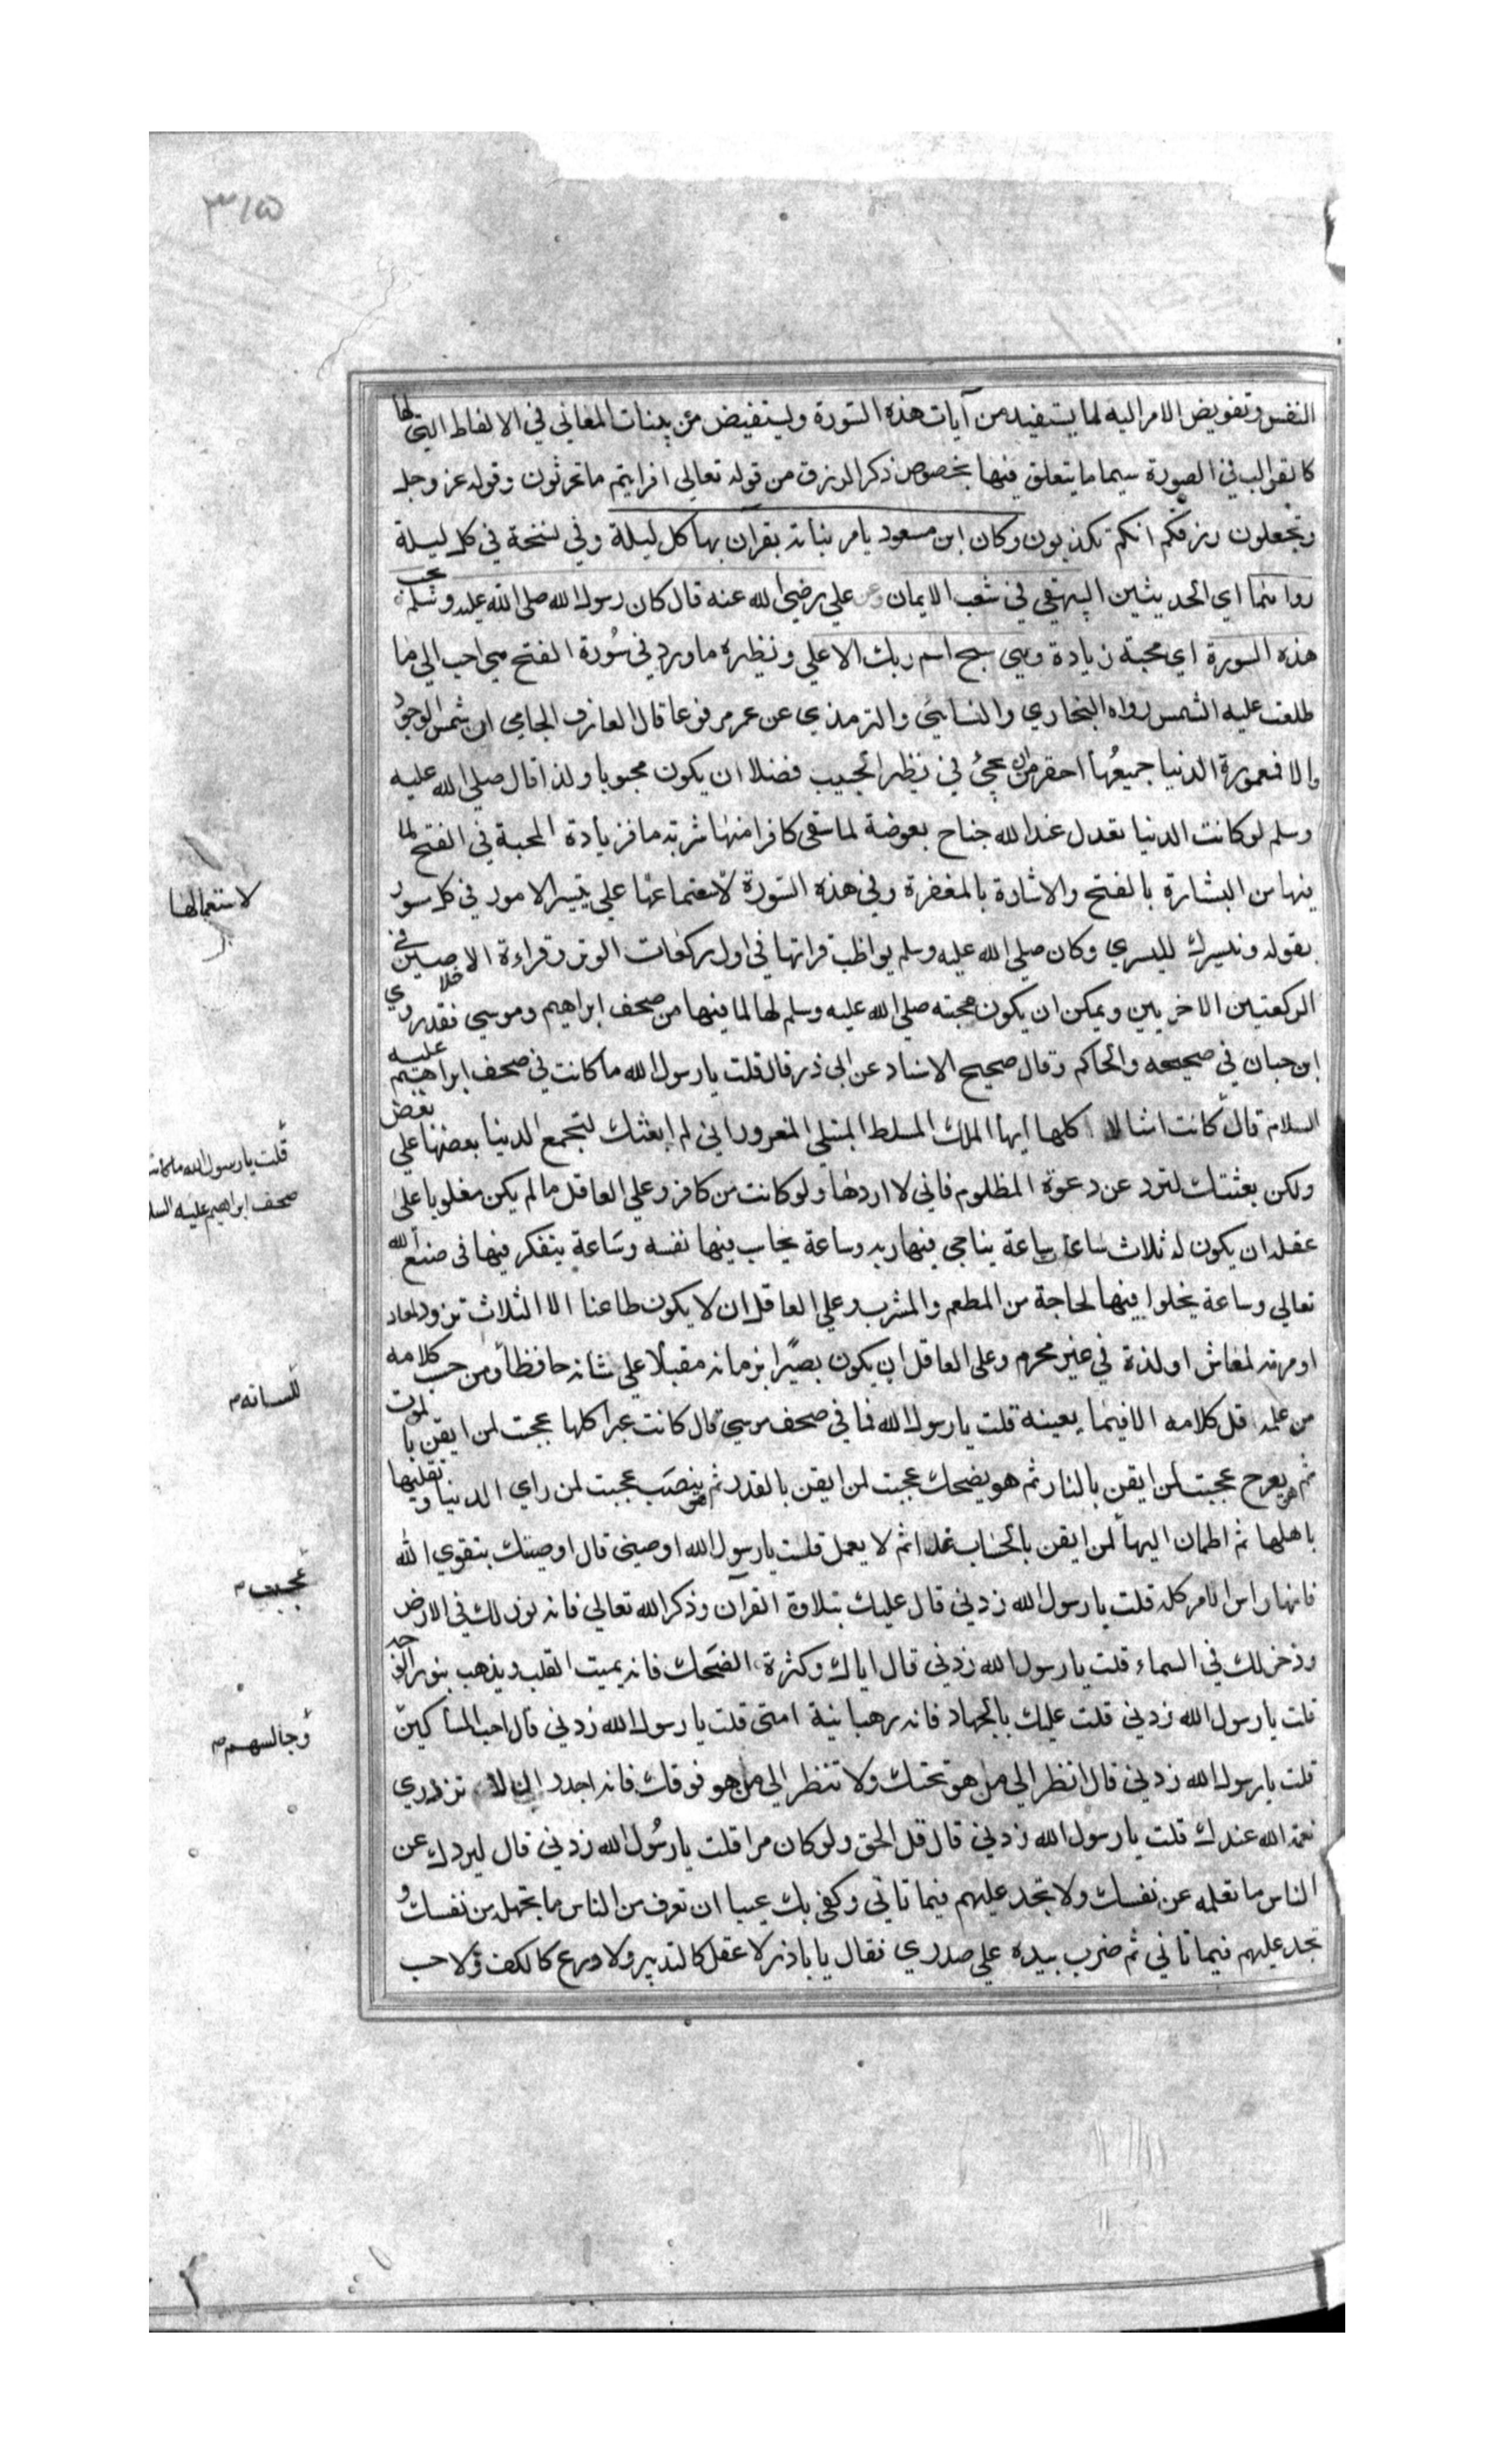 ٣١٥
النفس وتفويض الامر اليه لما يستفيد من آيات هذه السورة ويستفيض من بينات المعاني في الالفاظ التي لها
كالقوالب في الصورة سيما ما يتعلق فيها بخصوص ذكر الرزق من قوله تعالى افرايتم ما تحرثون وقوله عز وجل
وتجعلون رزقكم انكم تكذبون وكان ابن مسعود يامر بناته يقرآن بها كل ليلة وفي نسخة في كل ليلة
رواهما اي الحديثين البيهقي في شعب الايمان وعن علي رضي الله عنه قال كان رسول الله صلى الله عليه وسلم يحب
هذه السورة اي محبة زيادة وهي سبح اسم ربك الاعلي ونظيره ما ورد في سُورة الفتح هي احب الي مما
طلعت عليه الشمس رواه البخاري والنسائي والترمذي عن عمر مرفوعا قال العارف الجامي اي شمس الوجود
والا فمعمورة الدنيا جميعُها احقر من ان يجئ في نظير الحبيب فضلا ان يكون محبوبا ولذا قال صلى الله عليه
وسلم لو كانت الدنيا تعدل عند الله جناح بعوضة لما سقى كافرا منها شربة ما فزيادة المحبة في الفتح لما
فيها من البشارة بالفتح والاشارة بالمغفرة وفي هذه السورة لاستعمالها علي تيسير الامور في كل سور
بقوله ونيسرك لليسري وكان صلى الله عليه وسلم يواظب قراتها في اول ركعات الوتر وقراءة الاخلاصين في
الركعتين الاخريين ويمكن ان يكون محبته صلى الله عليه وسلم لها لما فيها من صحف ابراهيم وموسي فقد روي
ابن حبان في صحيحه والحاكم وقال صحيح الاسناد عن ابى ذر قال قلت يا رسول الله ما كانت في صحف ابراهيم عليه
السلام قال كانت امثالا كلها ايها الملك المسلط المبتلي المغرور اني لم ابعثك لتجمع الدنيا بعضها علي بعض
ولكن بعثتك لترد عن دعوة المظلوم فاني لا اردها ولو كانت من كافر وعلي العاقل ما لم يكن مغلوبا على
عقله ان يكون له ثلاث ساعات ساعة يناجي فيها ربه وساعة يحاسب فيها نفسه وساعة يتفكر فيها في صنع الله
تعالي وساعة يخلوا فيها لحاجة من المطعم والمشرب وعلي العاقل ان لا يكون طاعنا الا الثلاث تزود لمعاد
او مرمة لمعاش او لذة في غير محرم وعلى العاقل ان يكون بصيرا بزمانه مقبلا علي شانه حافظا ومن حسب كلامه
من عمله قل كلامه الا فيما يعينه قلت يا رسول الله فما في صحف موسي قال كانت عبرا كلها عجبت لمن ايقن بالموت
ثم هو يفرح عجبت لمن ايقن بالنار ثم هو يضحك عجبت لمن ايقن بالقدر ثم هو ينصب عجبت لمن راي الدنيا وتقلبها
باهلها ثم اطمان اليها لمن ايقن بالحساب غدا ثم لا يعمل قلت يا رسول الله اوصيني قال اوصيتك بتقوي الله
فانها راس الامر كله قلت يا رسول الله زدني قال عليك بتلاوة القرآن وذكر الله تعالي فانه نور لك في الارض
وذخر لك في السماء قلت يا رسول الله زدني قال اياك وكثرة الضحك فانه يميت القلب ويذهب بنور الوجه
قلت يا رسول الله زدني قلت عليك بالجهاد فانه رهبانية امتى قلت يا رسول الله زدني قال احب المساكين
قلت يا رسول الله زدني قال انظر الي من هو تحتك ولا تنظر الي من هو فوقك فانه اجدر ان لا تزدري
نعمة الله عندك قلت يا رسول الله زدني قال قل الحق ولو كان مرا قلت يا رسُول الله زدني قال ليردك عن
الناس ما تعلمه عن نفسك ولا تجد عليهم فيما تاتي وكفى بك عيبا ان تعرف من الناس ما تجهل من نفسك و
تجد عليهم فيما تاتي ثم ضرب بيده علي صدري فقال يا باذر لا عقل كالتدبير ولا ورع كالكف ولا حسب
لاستعمالها
قلت يا رسول الله ما كانت
صحف ابراهيم عليه السلا
للسانه
عجبت
وجالسهم